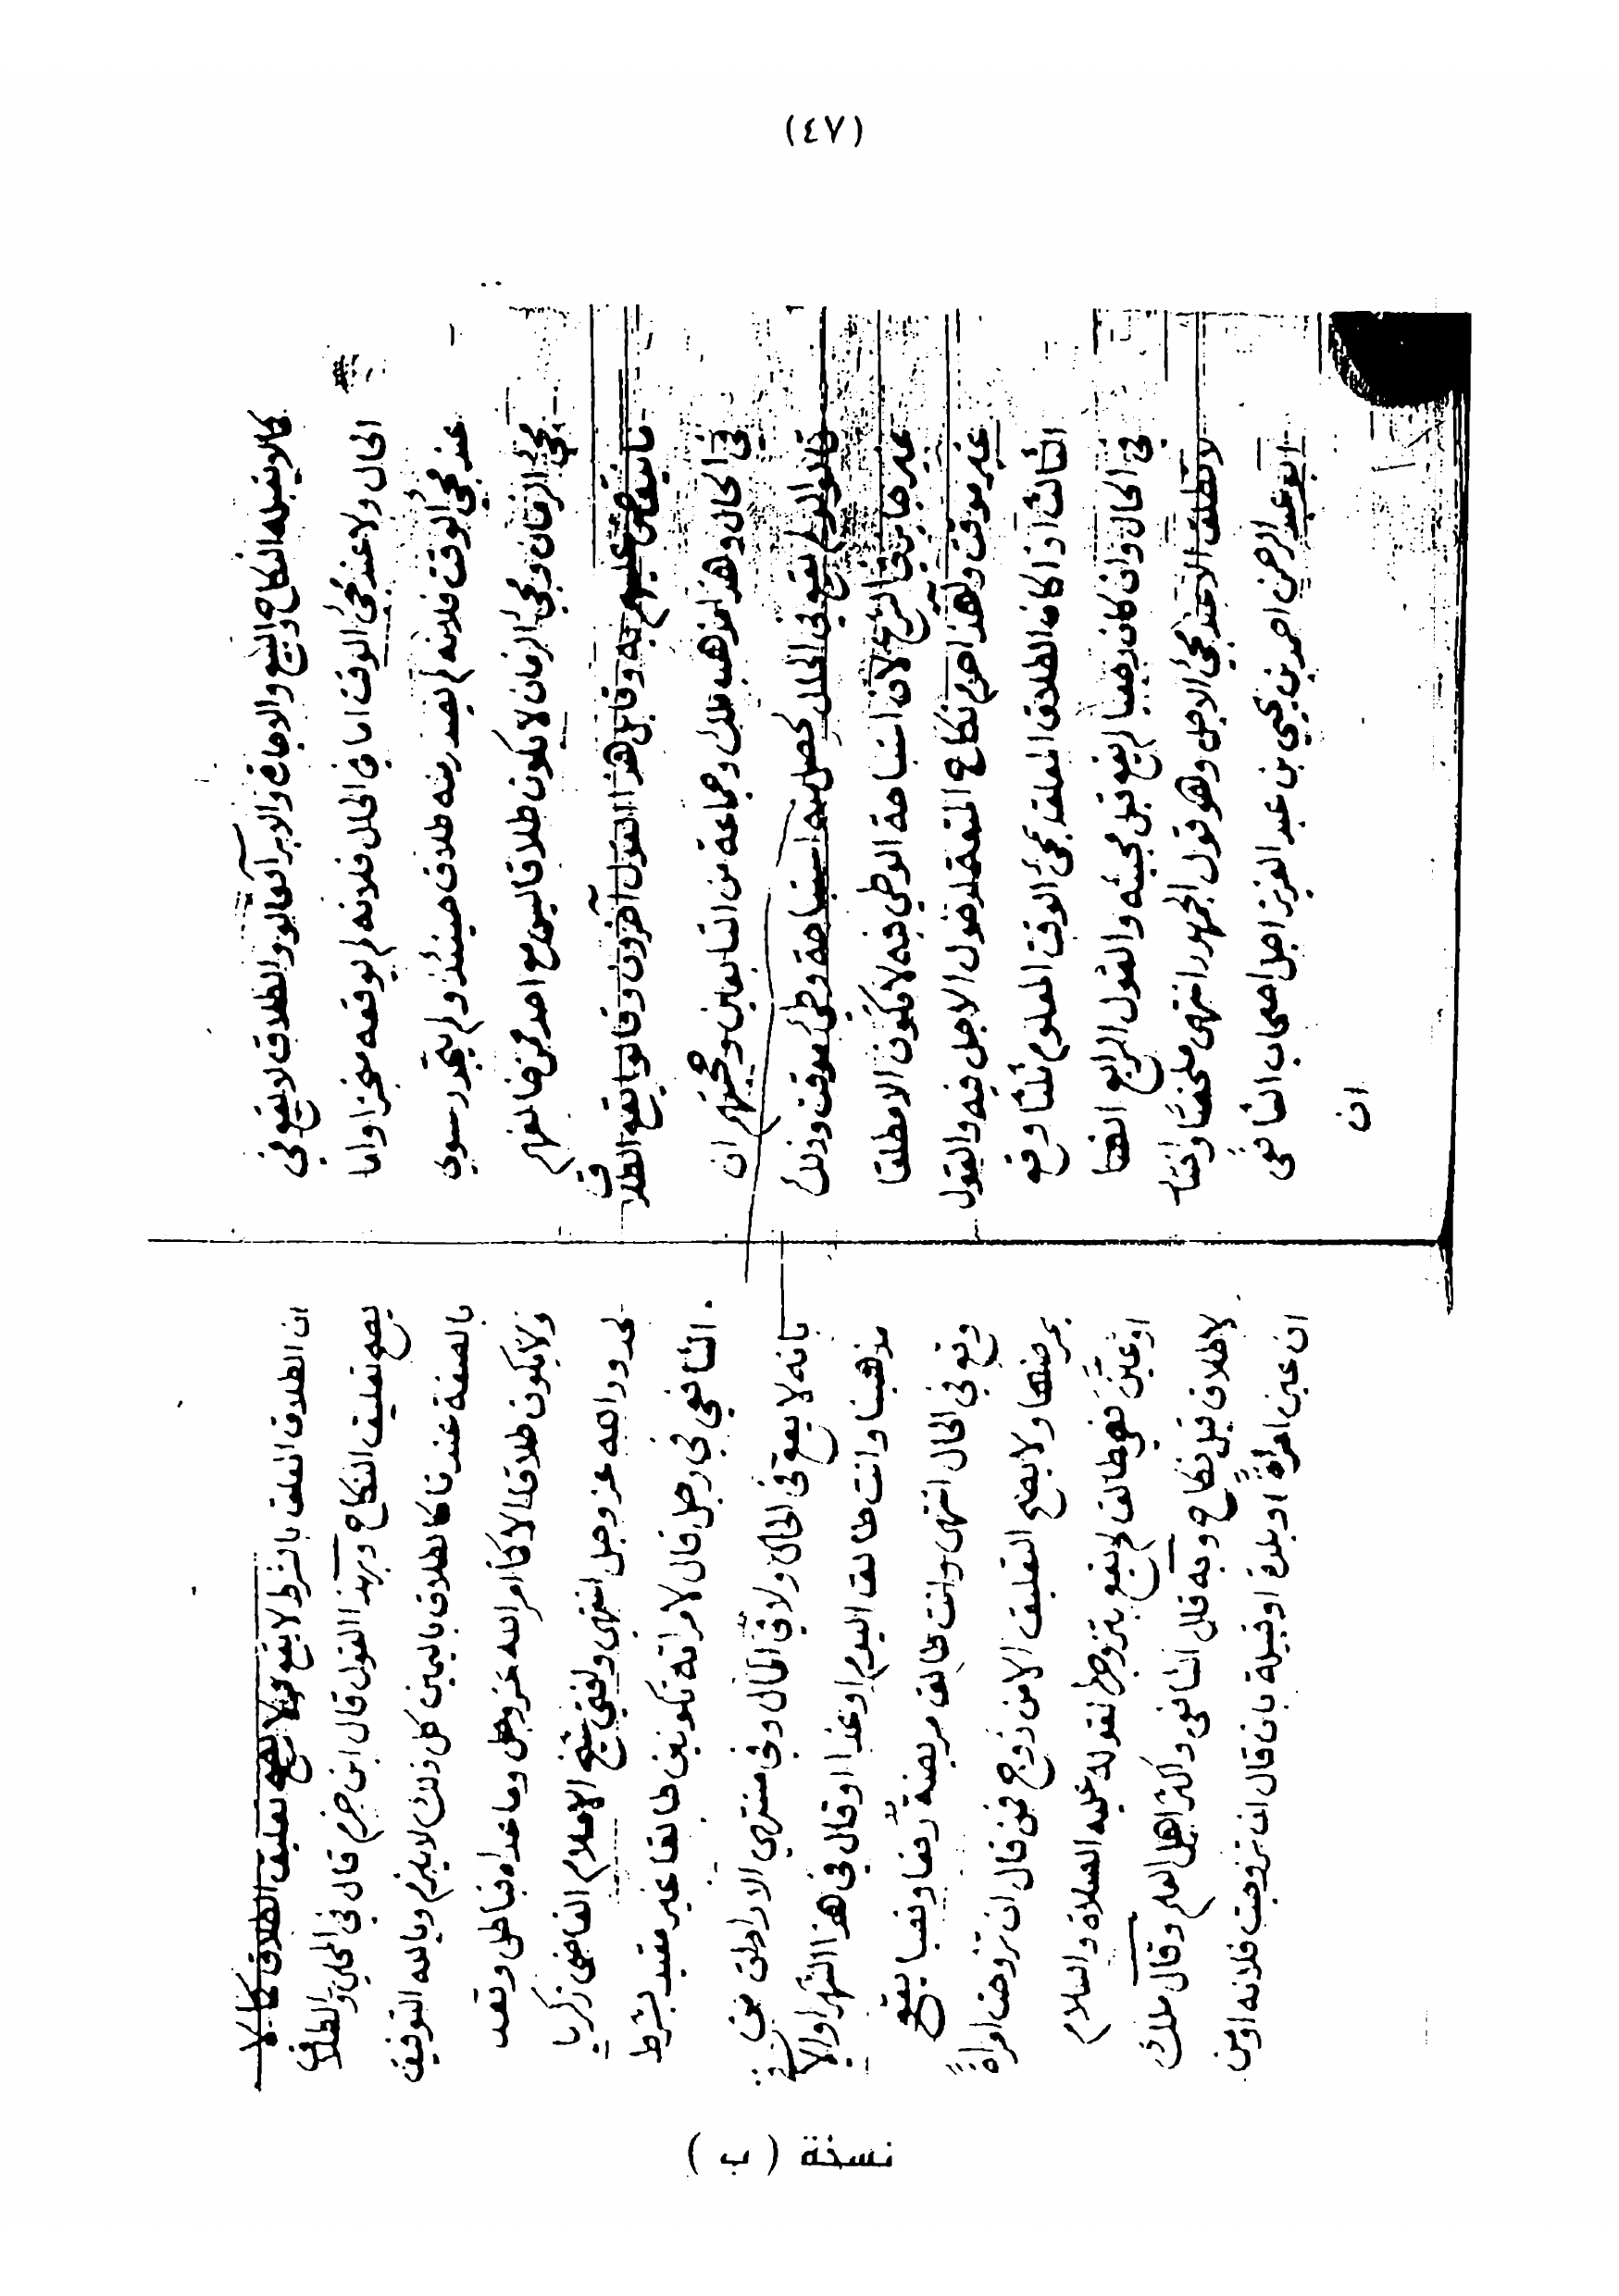 (٤٧)
كما لا يقبله النكاح والبيع والاجارة والابرآ قالوا والطلاق لا يقع في
الحال ولا عند مجئ الوقت اما في الحال فلانه لم يوقعه منجزا واما
عند مجئ الوقت فلانه لم يصدر منه طلاق حينئذ ولم يتجدد سوي
مجئ الزمان ومجئ الزمان لا يكون طلاقا ليس مع احد ممن خالفهم
ما ينقص عليهم به وقابل هذا القول آخرون وقالوا يقع الطلاق
في الحال وهذا مذهب مالك وجماعة من التابعين وحجتهم ان
قالوا لو لم يقع في الحال لحصل به استباحة وطئ موقت وذلك
غير جايز في الشرع لان استباحة الوطي فيه لا تكون الا مطلقا
غير موقت ولهذا حرم نكاح المتعة لدخول الاجل فيه والقول
الثالث اذا كان الطلاق المعلق بمجئ الوقت المعلوم ثلثا وقع
في الحال وان كان رجعيا لم يقع قبل مجيئه والقول الرابع انها
لا تطلق الا عند مجئ الاجل وهو قول الجمهور انتهى ملخصا واختار
ابو عبد الرحمن احمد بن يحيي بن عبد العزيز اجل اصحاب الشافعي
ان
ان الطلاق المعلق بالشرط لا يقع ولا يصح تعليق الطلاق كما لا
يصح تعليق النكاح وبهذا القول قال ابن حزم قال في المحلي والطلاق
بالصفة عندنا كالطلاق باليمين كل ذلك لا يلزم وبالله التوفيق
ولا يكون طلاقا الا كما امر الله عز وجل وما عداه فباطل وتعد
لحدود الله عز وجل انتهى ولفتي شيخ الاسلام القاضي زكريا
الشافعي في رجل قال لامراته تكونين طالقا غير مقيد بشرط
بانه لا يقع في الحال ولا في المآل وفي منتهي الارادات من
مذهبنا وانت طالق اليوم او غدا او قال في هذا الشهر او الآتي
وقع في الحال انتهى وانت طالق مريضة رفعا ونصبا يقع
بمرضها ولا يصح التعليق الا من زوج فمن قال ان تزوجت امراة
او عين فهي طالق لم يقع بتزوجها لقوله عليه الصلاة والسلام
لا طلاق قبل نكاح وبه قال الشافعي واكثر اهل العلم وقال مالك
ان عين امراة او بلدة او قبيلة بان قال ان تزوجت فلانه او من